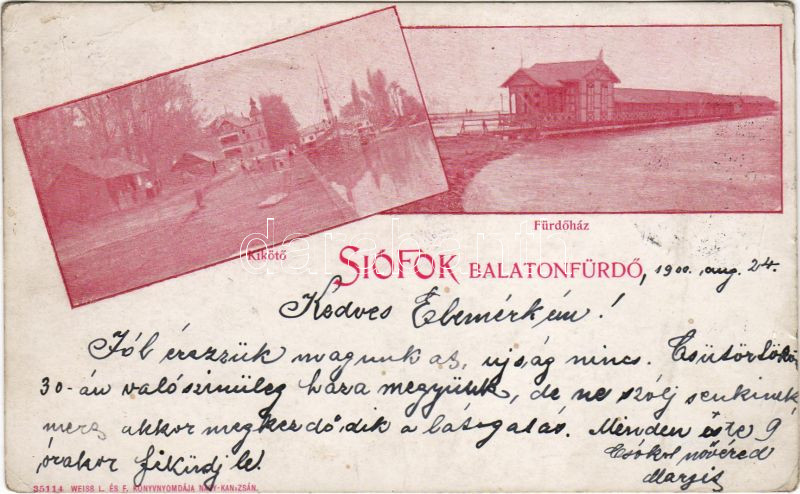 Fürdőház
Kikötő
SIÓFOK BALATONFÜRDŐ, 1900. aug. 24.
Kedves Ebemérkém!
Jól érezzük magunkat, ujság nincs. Csütörtökön
30-án valószinüleg haza megyünk, de ne szólj senkinek
merz akkor megkezdődik a látogatás. Minden este 9
órakor feküdj le.
Csókol nővéred
Margit
35114 WEISS L. ÉS F. KÖNYVNYOMDÁJA NAGY-KANIZSÁN.